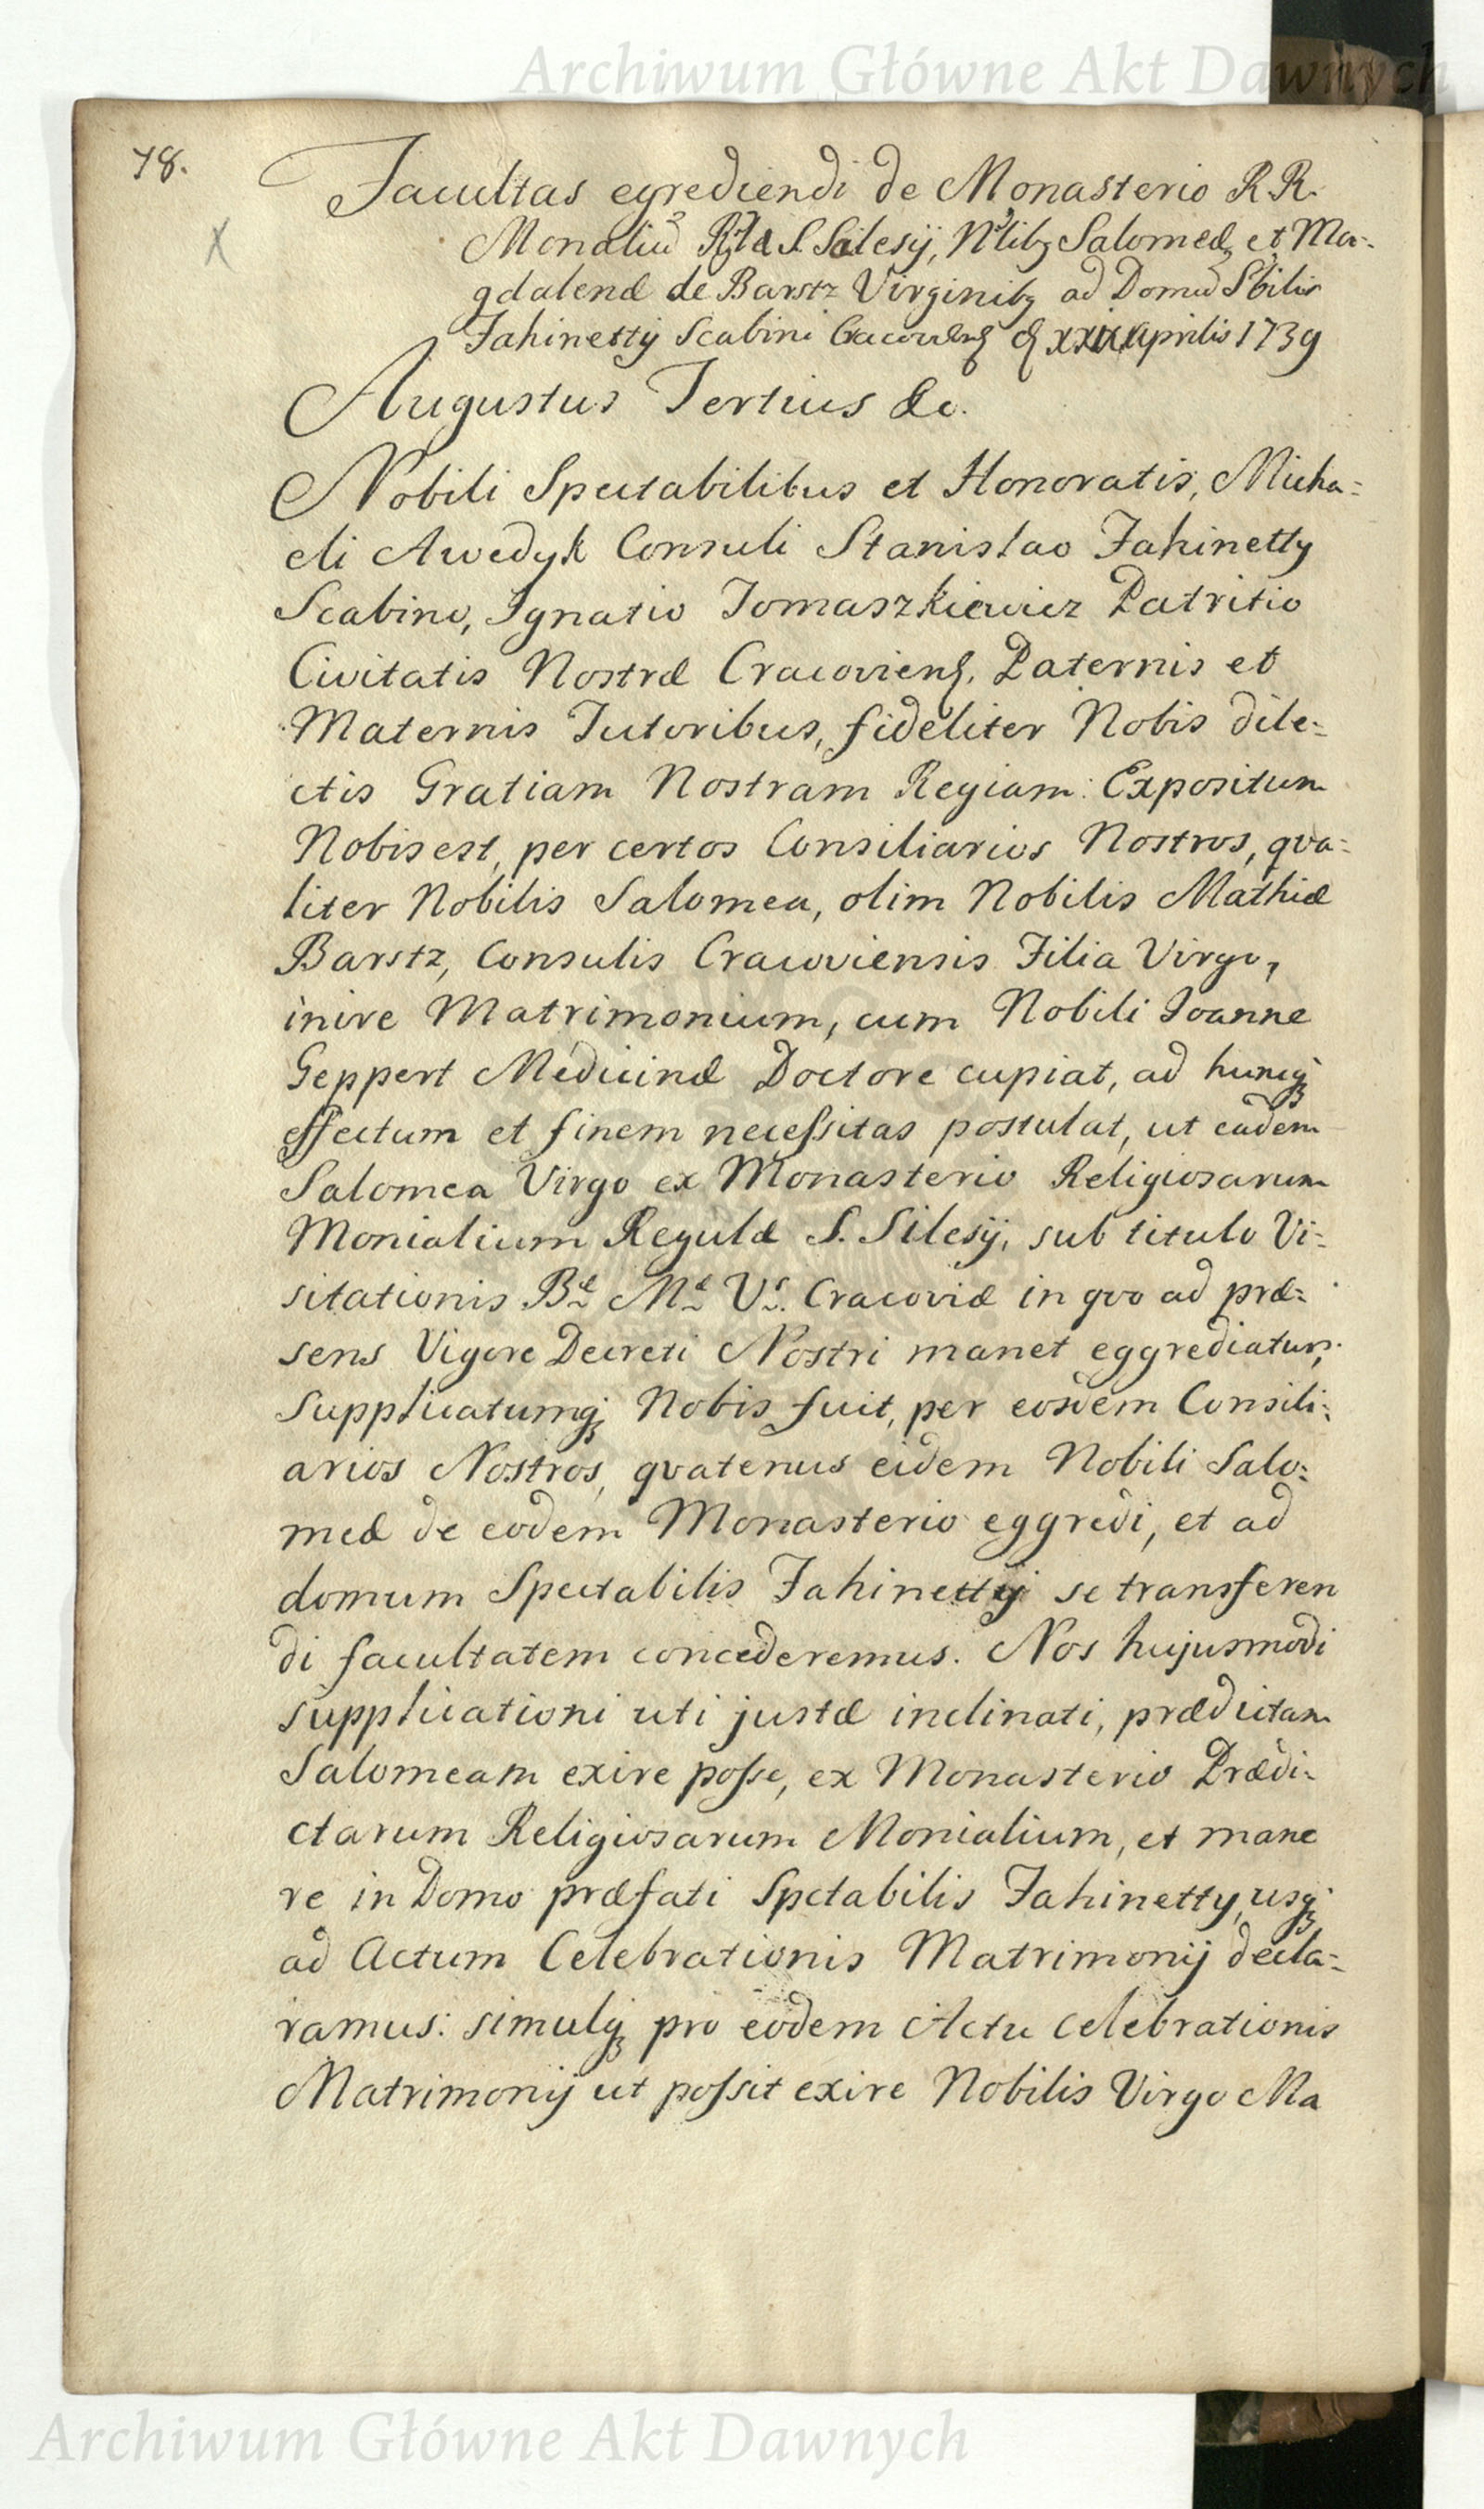 Archiwum Główne Akt Dawnych
78.
Facultas egrediendi de Monasterio R.R.
Monaliũ Rlæ S. Salesij, Nlibꝫ Salomeæ et Ma-
gdalenæ de Barstz Virginibꝫ ad Domũ Sbilis
Fahinettij Scabini Cracovienꝭ Aprilis 1739
Augustus Tertius &c.
Nobili Spectabilibus et Honoratis, Micha=
eli Awedyk Consuli Stanislao Fahinetty
Scabino, Ignatio Tomaszkiewicz Patritio
Civitatis Nostræ Cracovienꝭ. Paternis et
Maternis Tutoribus, fideliter Nobis dile=
ctis Gratiam Nostram Regiam: Expositum
Nobis est, per certos Consiliarios Nostros, qva=
liter Nobilis Salomea, olim Nobilis Mathiæ
Barstz, Consulis Cracoviensis Filia Virgo,
inire Matrimonium, cum Nobili Joanne
Geppert Medicinæ Doctore cupiat, ad huncqꝫ
effectum et finem neceſsitas postulat, ut eadem
Salomea Virgo ex Monasterio Religiosarum
Monialium Regulæ S. Silesij, sub titulo Vi=
sitationis Bæ Mæ Vs. Cracoviæ in qvo ad præ=
sens Vigore Decreti Nostri manet eggrediatur,
Supplicatumqꝫ Nobis fuit, per eosdem Consili=
arios Nostros, qvatenus eidem Nobili Salo=
meæ de eodem Monasterio eggredi, et ad
domum Spectabilis Fahinettij se transferen
di facultatem concederemus. Nos hujusmodi
supplicationi uti justæ inclinati, prædictam
Salomeam exire poſse, ex Monasterio Prædi=
ctarum Religiosarum Monialium, et mane
re in Domo præfati Spctabilis Fahinetty, usqꝫ
ad Actum Celebrationis Matrimonij decla=
ramus: simulqꝫ pro eodem Actu Celebrationis
Matrimonij ut poſsit exire Nobilis Virgo Ma
Archiwum Główne Akt Dawnych